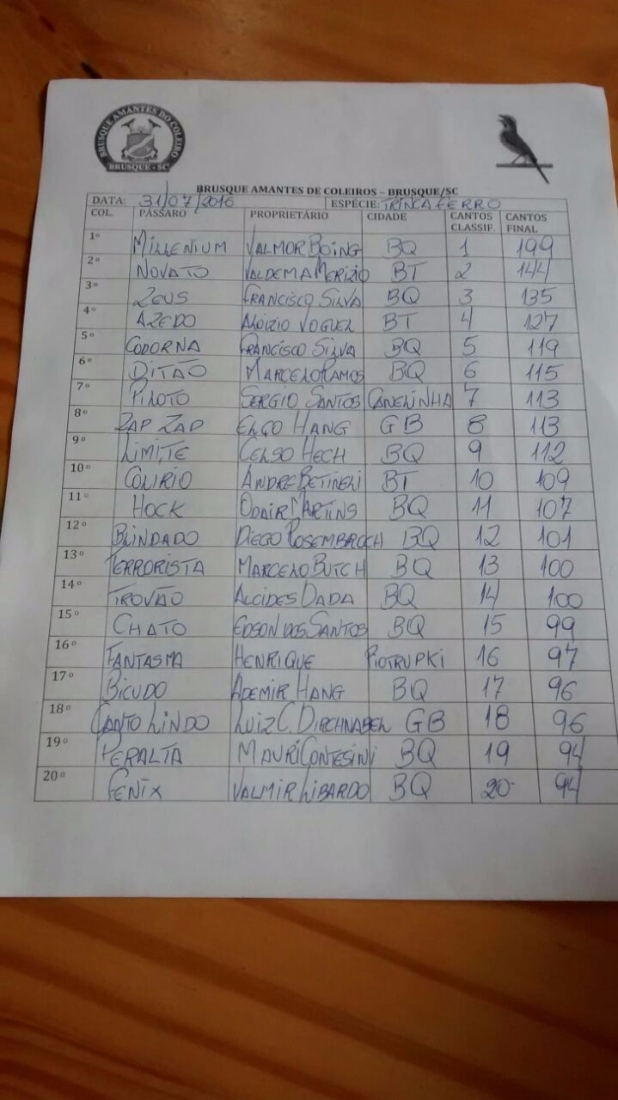 BRUSQUE AMANTES DO COLEIRO
BRUSQUE - SC
BRUSQUE AMANTES DE COLEIROS – BRUSQUE/SC
DATA: 31/07/2016 ESPÉCIE: TRINCA FERRO
COL. PÁSSARO PROPRIETÁRIO CIDADE CANTOS CLASSIF. CANTOS FINAL
1º MILLENIUM VALMOR BOING BQ 1 199
2º NOVATO VALDEMA MERIZIO BT 2 144
3º ZEUS FRANCISCO SILVA BQ 3 135
4º AZEDO ALOIZIO VOGUEL BT 4 127
5º CODORNA FRANCISCO SILVA BQ 5 119
6º DITÃO MARCELO RAMOS BQ 6 115
7º PILOTO SERGIO SANTOS CANELINHA 7 113
8º ZAP ZAP ELÇO HANG GB 8 113
9º LIMITE CELSO HECH BQ 9 112
10º COLIRIO ANDRE BT 10 109
11º HOCK ODAIR MARTINS BQ 11 107
12º BLINDADO DIEGO ROSEMBROCH BQ 12 101
13º TERRORISTA MARCELO BUTCH BQ 13 100
14º TROVÃO ALCIDES DADA BQ 14 100
15º CHATO EDSON DOS SANTOS BQ 15 99
16º FANTASMA HENRIQUE PIOTRUPKI 16 97
17º BICUDO ADEMIR HANG BQ 17 96
18º CANTO LINDO LUIZ C. DIRCHNABEL GB 18 96
19º PERALTA MAURI CONTESINI BQ 19 94
20º FENIX VALMIR LIBARDO BQ 20 94